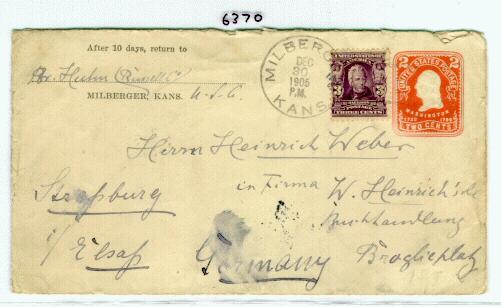 6370
After 10 days, return to
Russell Co
MILBERGER, KANS. U.S.A.
MILBERGER
DEC
30
1905
P.M.
KANS.
UNITED STATES OF AMERICA
POSTAGE
3 3
THREE CENTS
2 2
UNITED STATES POSTAGE
WASHINGTON
1732 1799
TWO CENTS
Herrn Heinrich Weber
in Firma W. Heinrich'sche
Buchhandlung
Straßburg
i/ Elsaß Germany Broglieplatz